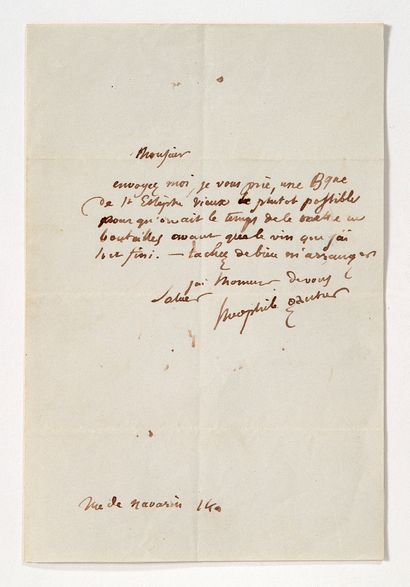 Monsieur
envoyez moi, je vous prie, une Bque
de St Estephe vieux le plutot possible
pour qu'on ait le temps de le mettre en
bouteilles avant que le vin que j'ai
soit fini. — tachez de bien m'arranger
j'ai l'honneur de vous
saluer
Theophile Gautier
rue de navarin 14